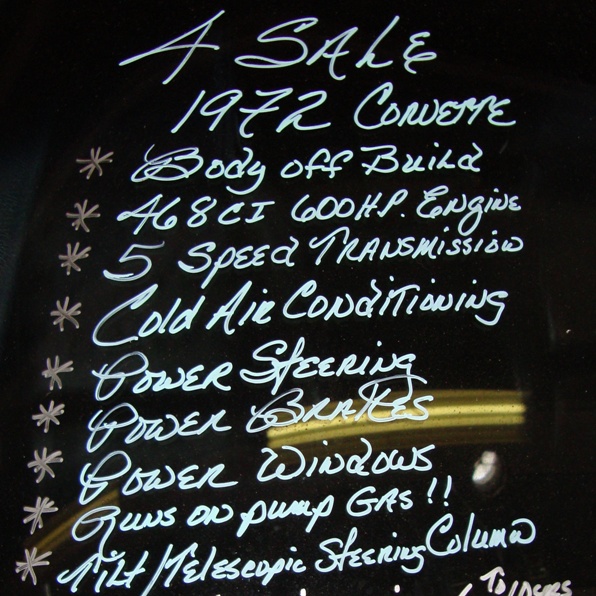 4 SALE
1972 CORVETTE
* Body off Build
* 468CI 600HP. Engine
* 5 Speed TRANSMISSION
* Cold AIR CONDITIONING
* POWER STEERING
* POWER BRAKES
* POWER WINDOWS
* Runs on pump GAS!!
* Tilt/Telescopic Steering Column